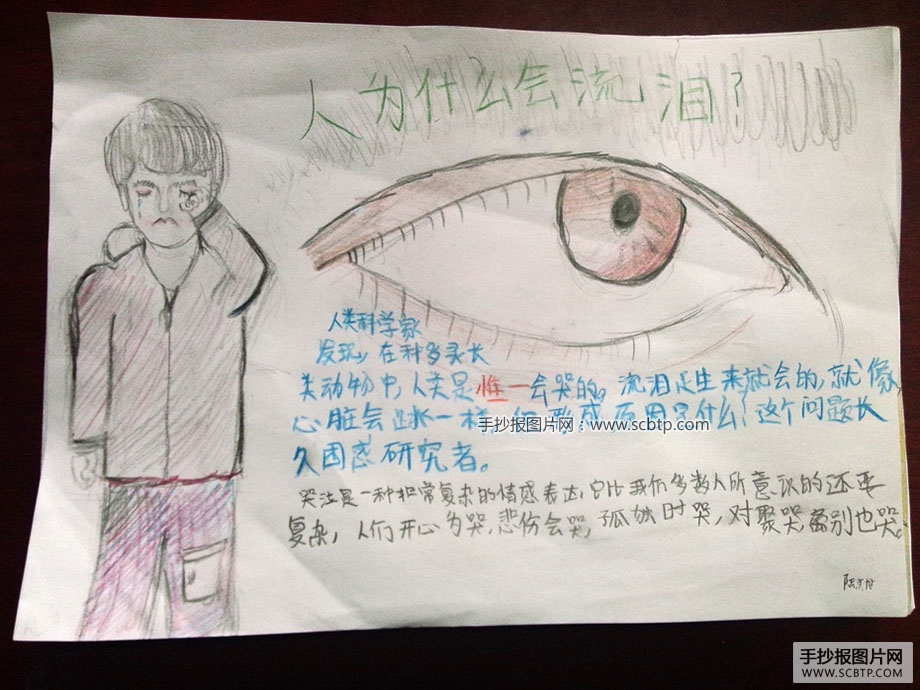 人为什么会流泪？
人类科学家
发现，在种多灵长
类动物中，人类是惟一会哭的，流泪是生来就会的，就像
心脏会跳一样，但
原因是什么？这个问题长
手抄报图片网：www.scbtp.com
久困惑研究者。
哭泣是一种非常复杂的情感表达，它比我们多数人所意识的还要
复杂，人们开心为哭，悲伤会哭，孤独时哭，对聚哭，离别也哭。
手抄报图片网
WWW.SCBTP.COM